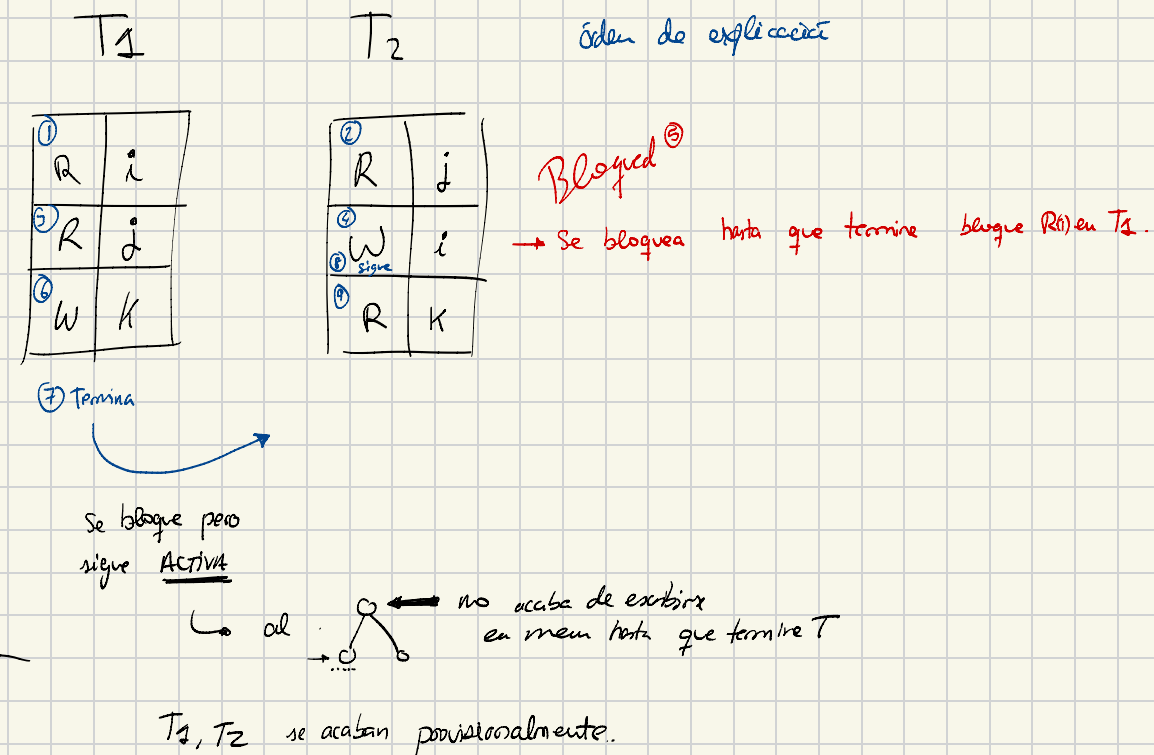 T1 T2 órden de explicación
① R i ② R j
Bloqued ⑤
③ R j ④ W i
⑧ sigue
→ Se bloquea hasta que termine bloque R(i) en T1.
⑥ W K ⑨ R K
⑦ Termina
se bloque pero
sigue ACTIVA
↳ al
no acaba de escribirse
en mem hasta que termine T
T1, T2 se acaban provisionalmente.